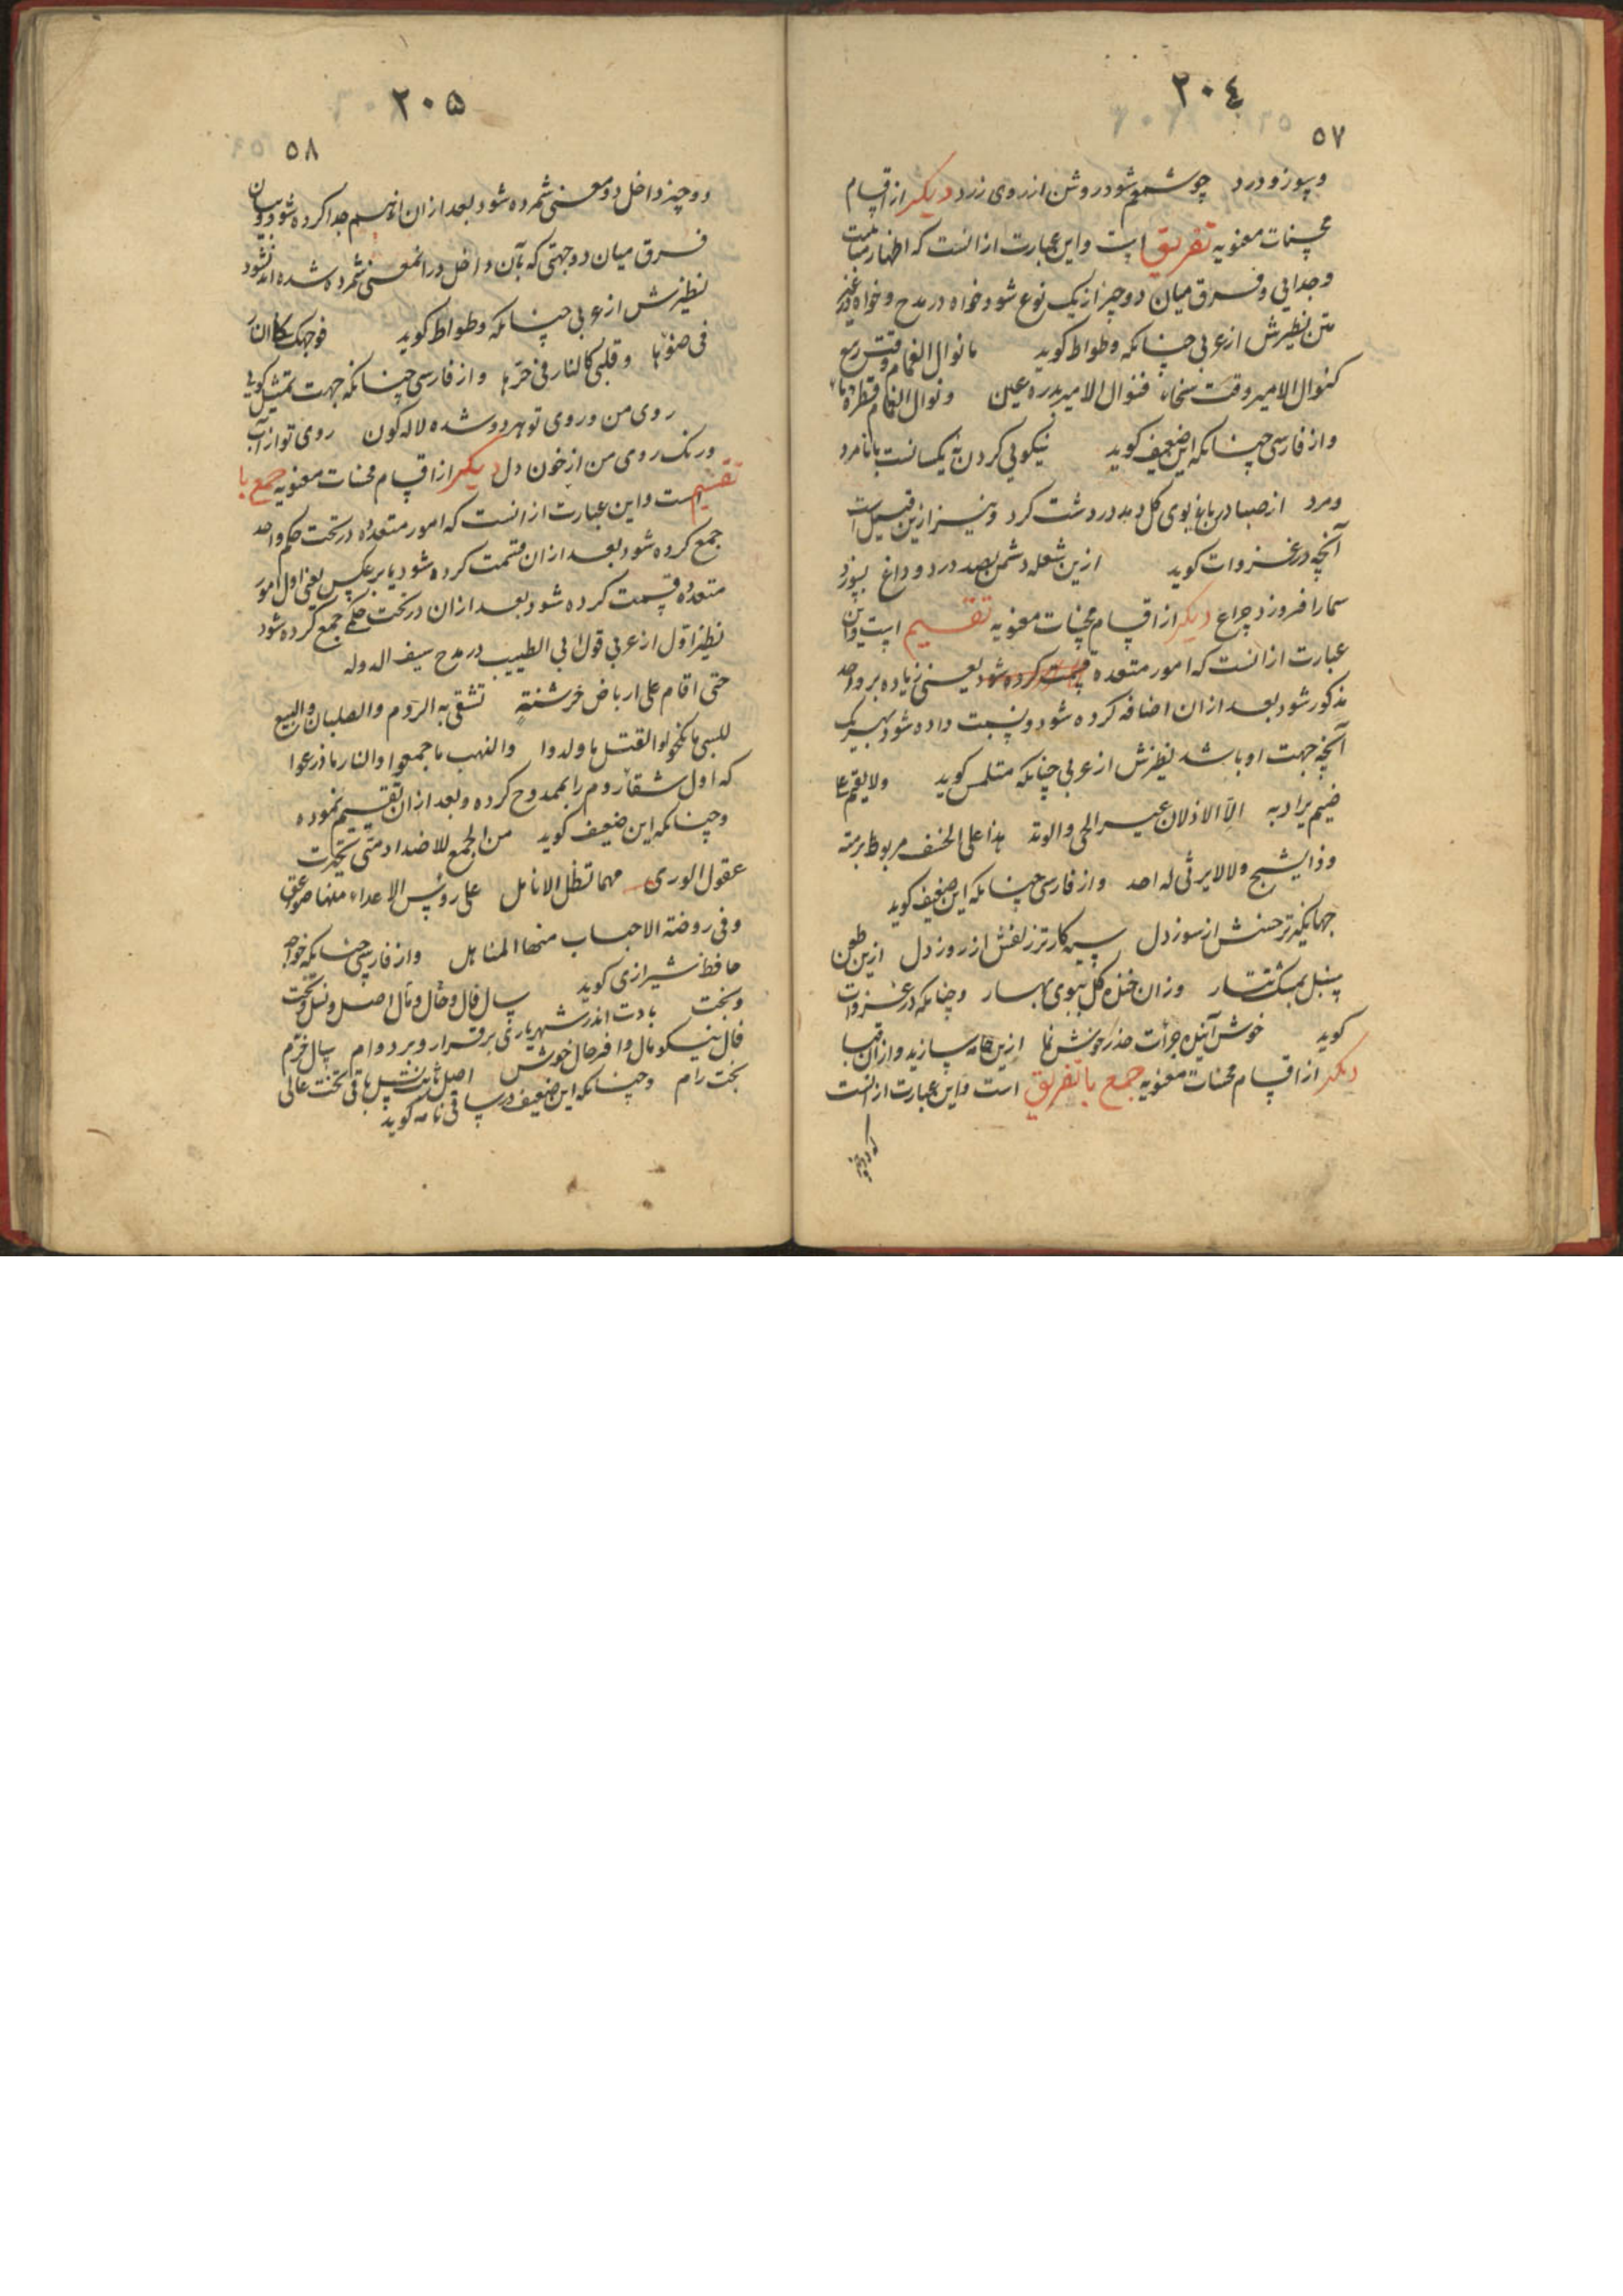 ٢٠٤
٥٧
و بسوز و درد چو شمعم شود روشن از روی زرد دیکر از اقسام
محسنات معنویه تفریق است و این عبارت از انست که اظهار مباینت
و جدایی و فرق میان دو چیز از یک نوع شود خواه در مدح و خواه در غیر
متن نظیرش از عربی چنانکه وطواط کوید ما نوال الغمام وقت ربیع
کنوال الامیر وقت سخاء فنوال الامیر بدره عین و نوال الغمام قطره ماء
و از فارسی چنانکه این ضعیف کوید نیکویی کردن نه یکسانست با نامرد
و مرد از صبا در باغ بوی کل دمد در دشت کرد و نیز ازین قبیل است
آنچه در غزوات کوید ازین شعله دشمن بصد درد و داغ بسوزد
سما را فروزد چراغ دیکر از اقسام محسنات معنویه تقسیم است و این
عبارت از انست که امور متعدده قسمت کرده شود یعنی زیاده بر واحد
مذکور شود بعد از ان اضافه کرده شود و نسبت داده شود بهر یک
آنچه جهت او باشد نظیرش از عربی چنانکه متلمس کوید ولا یقیم علی
ضیم یراد به الا الاذلان عیر الحی والوتد هذا علی الخسف مربوط برمته
وذا یشج ولا یرثی له احد و از فارسی چنانکه این ضعیف کوید
جهانکیرتر حسنش از سوز دل سیه کارتر زلفش از روز دل ازین طعن
سنبل بمشک تتار وزان خنده کل ببوی بهار و چنانکه در غزوات
کوید خوش آینده جرأت حذر خوش نما ازین جامه سازید و از ان قبا
دیکر از اقسام محسنات معنویه جمع با تفریق است و این عبارت از انست
که دو چیز
٢٠٥
٥٨
دو چیز داخل دو معنی شمرده شود بعد از ان از هم جدا کرده شود و بیان
فرق میان دو جهتی که بآن داخل در انمعنی شمرده شده اند شود
نظیرش از عربی چنانکه وطواط کوید فوجهک کالنار
فی ضوءها و قلبی کالنار فی حرها و از فارسی چنانکه جهت تمثیل کویی
روی من و روی تو هر دو شده لاله کون روی تو از آب
و رنک روی من از خون دل دیکر از اقسام محسنات معنویه جمع با
تقسیم است و این عبارت از انست که امور متعدده در تحت حکم واحد
جمع کرده شود بعد از ان قسمت کرده شود یا بر عکس یعنی اول امور
متعدده قسمت کرده شود بعد از ان در تحت حکمی جمع کرده شود
نظیر اول از عربی قول ابی الطیب در مدح سیف الدوله
حتی اقام علی ارباض خرشنة تشقی به الروم والصلبان والبیع
للسبی ما نکحوا والقتل ما ولدوا والنهب ما جمعوا والنار ما زرعوا
که اول شقاء روم را بممدوح کرده و بعد از ان تقسیم نموده
و چنانکه این ضعیف کوید من الجمع للاضداد متی تحیرت
عقول الوری مهما تظل الانامل علی رؤس الاعداء منها صواعق
وفی روضة الاحباب منها المناهل و از فارسی چنانکه خواجه
حافظ شیرازی کوید سال و فال و حال و مال و اصل و نسل و تخت
و بخت بادت اندر شهریاری بر قرار و بر دوام سال خرم
فال نیکو مال وافر حال خوش اصل ثابت نسل باقی تخت عالی
بخت رام و چنانکه این ضعیف در ساقی نامه کوید